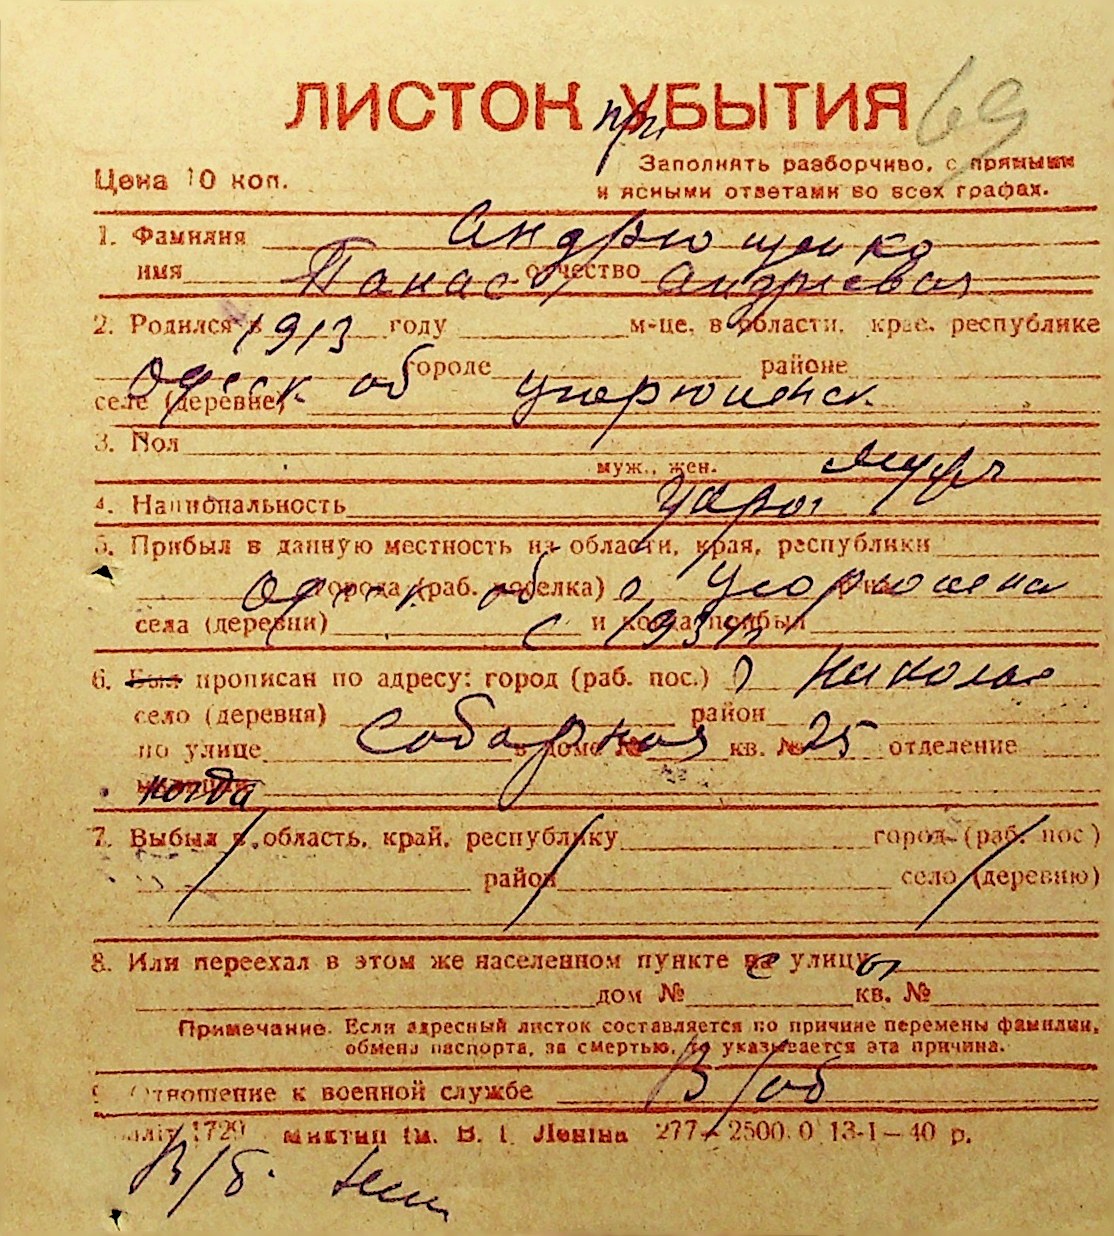 ЛИСТОК при УБЫТИЯ 69
Цена 10 коп.
Заполнять разборчиво, с прямыми
и ясными ответами во всех графах.
1. Фамилия Андрющенко
имя Панас отчество Андреевич
2. Родился в 1913 году м-це, в области, крае, республике
Одеск об городе районе
селе (деревне)
3. Пол
муж., жен. муж
4. Национальность
5. Прибыл в данную местность из области, края, республики
Одеск об города (раб. поселка)
села (деревни) с и когда прибыл
6. Был прописан по адресу: город (раб. пос.) г Николаев
село (деревня) район
по улице Соборная в доме № кв. № 25 отделение
когда
7. Выбыл в область, край, республику город (раб. пос)
район село (деревню)
8. Или переехал в этом же населенном пункте на улицу
дом № кв. №
Примечание. Если адресный листок составляется по причине перемены фамилии,
обмена паспорта, за смертью, то указывается эта причина.
9 Отношение к военной службе В/об
1720 им. В. І. Леніна 277—2500.0 13-1—40 р.
В/б.